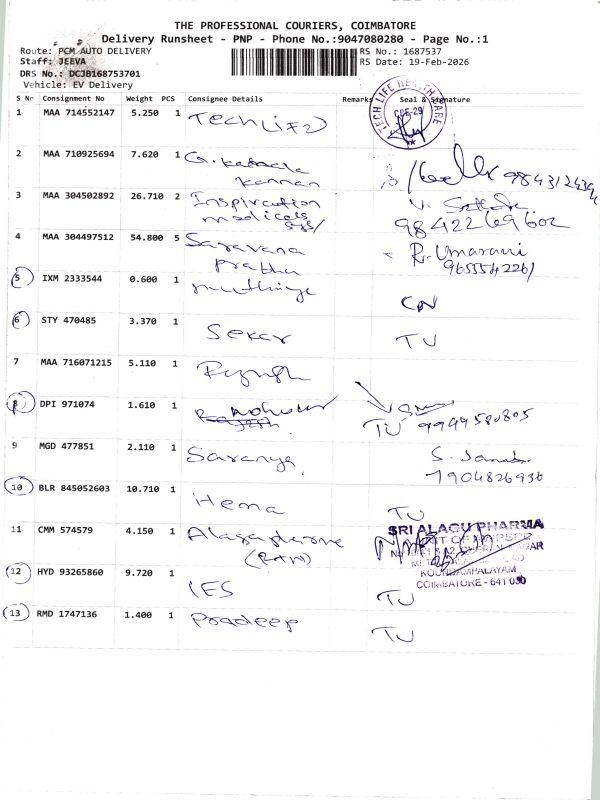 THE PROFESSIONAL COURIERS, COIMBATORE
Delivery Runsheet - PNP - Phone No.:9047080280 - Page No.:1
Route: PCM AUTO DELIVERY
RS No.: 1687537
Staff: JEEVA
RS Date: 19-Feb-2026
DRS No.: DCJB168753701
Vehicle: EV Delivery
S No Consignment No Weight PCS Consignee Details Remarks Seal & Signature
TECH LIFE HEALTHCARE
CBE-29
1 MAA 714552147 5.250 1 Tech Life
2 MAA 710925694 7.620 1 G. Kamala
Kannan
3 MAA 304502892 26.710 2 Inspiration
medicals
9842269602
4 MAA 304497512 54.800 5 Saravana
Prabha
R. Umarani
9655542261
5 IXM 2333544 0.600 1
CN
6 STY 470485 3.370 1 Sekar TU
7 MAA 716071215 5.110 1
8 DPI 971074 1.610 1
TU 9949580805
9 MGD 477851 2.110 1 Saranya
S.
7904826936
10 BLR 845052603 10.710 1 Hema TU
11 CMM 574579 4.150 1
SRI ALAGU PHARMA
KOUNDAMPALAYAM
COIMBATORE - 641 030
12 HYD 93265860 9.720 1 IES TU
13 RMD 1747136 1.400 1 Pradeep TU